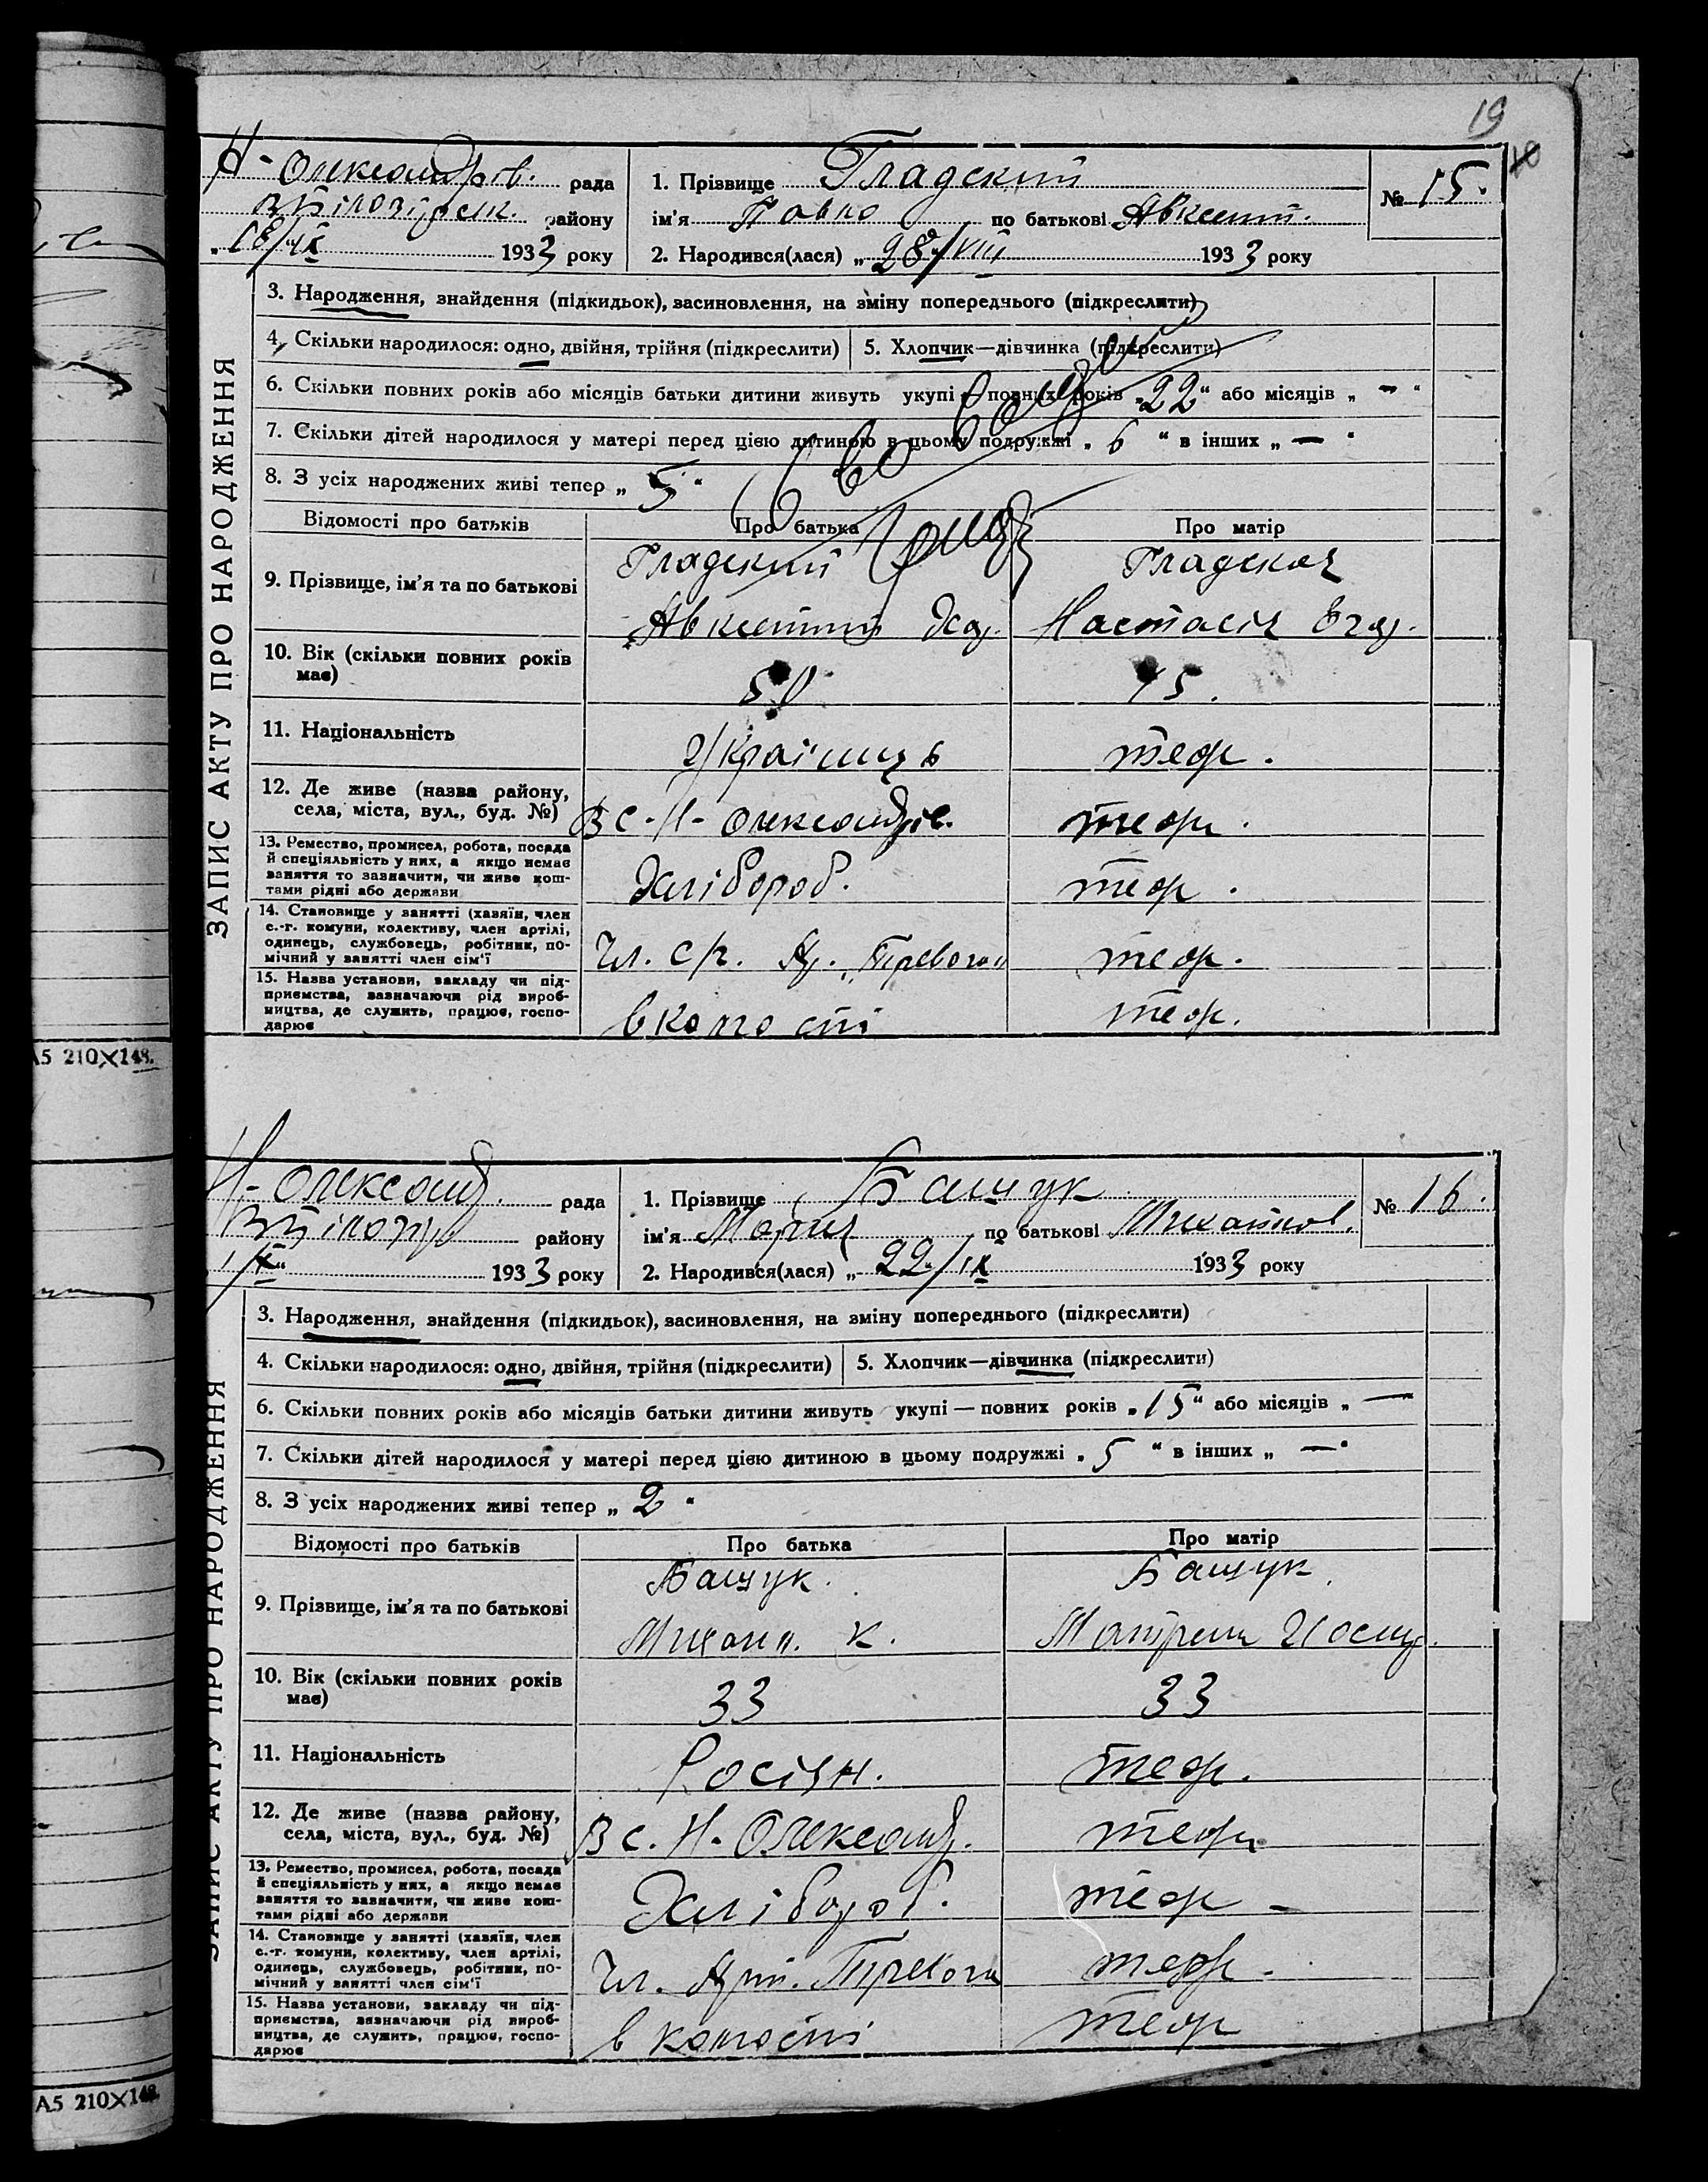 19
Н-Олександрів. рада
В Білозірськ. району
„18/IX 1933 року
1. Прізвище Гладский
ім'я Павло по батькові Авксент.
2. Народився(лася) „28/VIII 1933 року
№ 15.
ЗАПИС АКТУ ПРО НАРОДЖЕННЯ
3. Народження, знайдення (підкидьок), засиновлення, на зміну попереднього (підкреслити)
4. Скільки народилося: одно, двійня, трійня (підкреслити) 5. Хлопчик—дівчинка (підкреслити)
6. Скільки повних років або місяців батьки дитини живуть укупі — повних років „22" або місяців „—"
7. Скільки дітей народилося у матері перед цією дитиною в цьому подружжі „6" в інших „—"
8. З усіх народжених живі тепер „5"
Відомості про батьків Про батька Про матір
9. Прізвище, ім'я та по батькові
Гладский Гладская
Авксентий Настасія
10. Вік (скільки повних років
має)
50 45.
11. Національність Українець теж.
12. Де живе (назва району,
села, міста, вул., буд. №)
В с-Н-Олександрів. теж.
13. Ремество, промисел, робота, посада
й спеціяльність у них, а якщо немає
заняття то зазначити, чи живе кош-
тами рідні або держави
Хлібороб. теж.
14. Становище у занятті (хазяїн, член
с.-г. комуни, колективу, член артілі,
одинець, службовець, робітник, по-
мічний у занятті член сім'ї
Чл. с/г. Ар. „Тревога" теж.
15. Назва установи, закладу чи під-
приємства, зазначаючи рід вироб-
ництва, де служить, працює, госпо-
дарює
в колгоспі теж.
А5 210×148.
Н-Олександ. рада
району
1/X" 1933 року
1. Прізвище Бащук
ім'я Марія по батькові Михайлов.
2. Народився(лася) „22/IX 1933 року
№ 16.
ЗАПИС АКТУ ПРО НАРОДЖЕННЯ
3. Народження, знайдення (підкидьок), засиновлення, на зміну попереднього (підкреслити)
4. Скільки народилося: одно, двійня, трійня (підкреслити) 5. Хлопчик—дівчинка (підкреслити)
6. Скільки повних років або місяців батьки дитини живуть укупі — повних років „15" або місяців „—
7. Скільки дітей народилося у матері перед цією дитиною в цьому подружжі „5" в інших „—"
8. З усіх народжених живі тепер „2"
Відомості про батьків Про батька Про матір
9. Прізвище, ім'я та по батькові
Бащук. Бащук.
Михаил. К. Матрена Иосиф.
10. Вік (скільки повних років
має)
33 33
11. Національність Росіян. теж.
12. Де живе (назва району,
села, міста, вул., буд. №)
В с. Н-Олександ. теж
13. Ремество, промисел, робота, посада
й спеціяльність у них, а якщо немає
заняття то зазначити, чи живе кош-
тами рідні або держави
Хлібороб. теж -
14. Становище у занятті (хазяїн, член
с.-г. комуни, колективу, член артілі,
одинець, службовець, робітник, по-
мічний у занятті член сім'ї
Чл. Арт. Тревога теж.
15. Назва установи, закладу чи під-
приємства, зазначаючи рід вироб-
ництва, де служить, працює, госпо-
дарює
в колгоспі теж
А5 210×148.